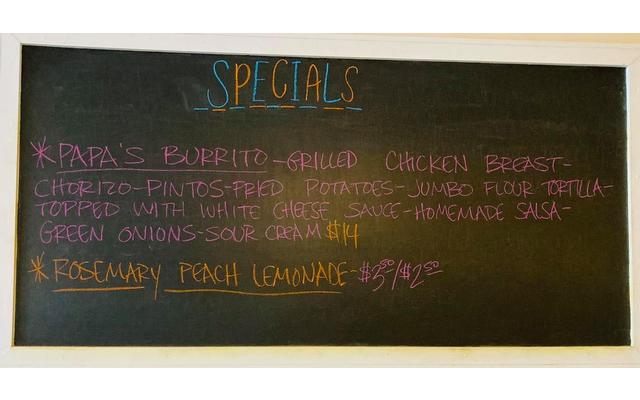 SPECIALS
*PAPA'S BURRITO-GRILLED CHICKEN BREAST-
CHORIZO-PINTOS-FRIED POTATOES-JUMBO FLOUR TORTILLA-
TOPPED WITH WHITE CHEESE SAUCE-HOMEMADE SALSA-
GREEN ONIONS-SOUR CREAM $14
*ROSEMARY PEACH LEMONADE-$3.50/$2.50